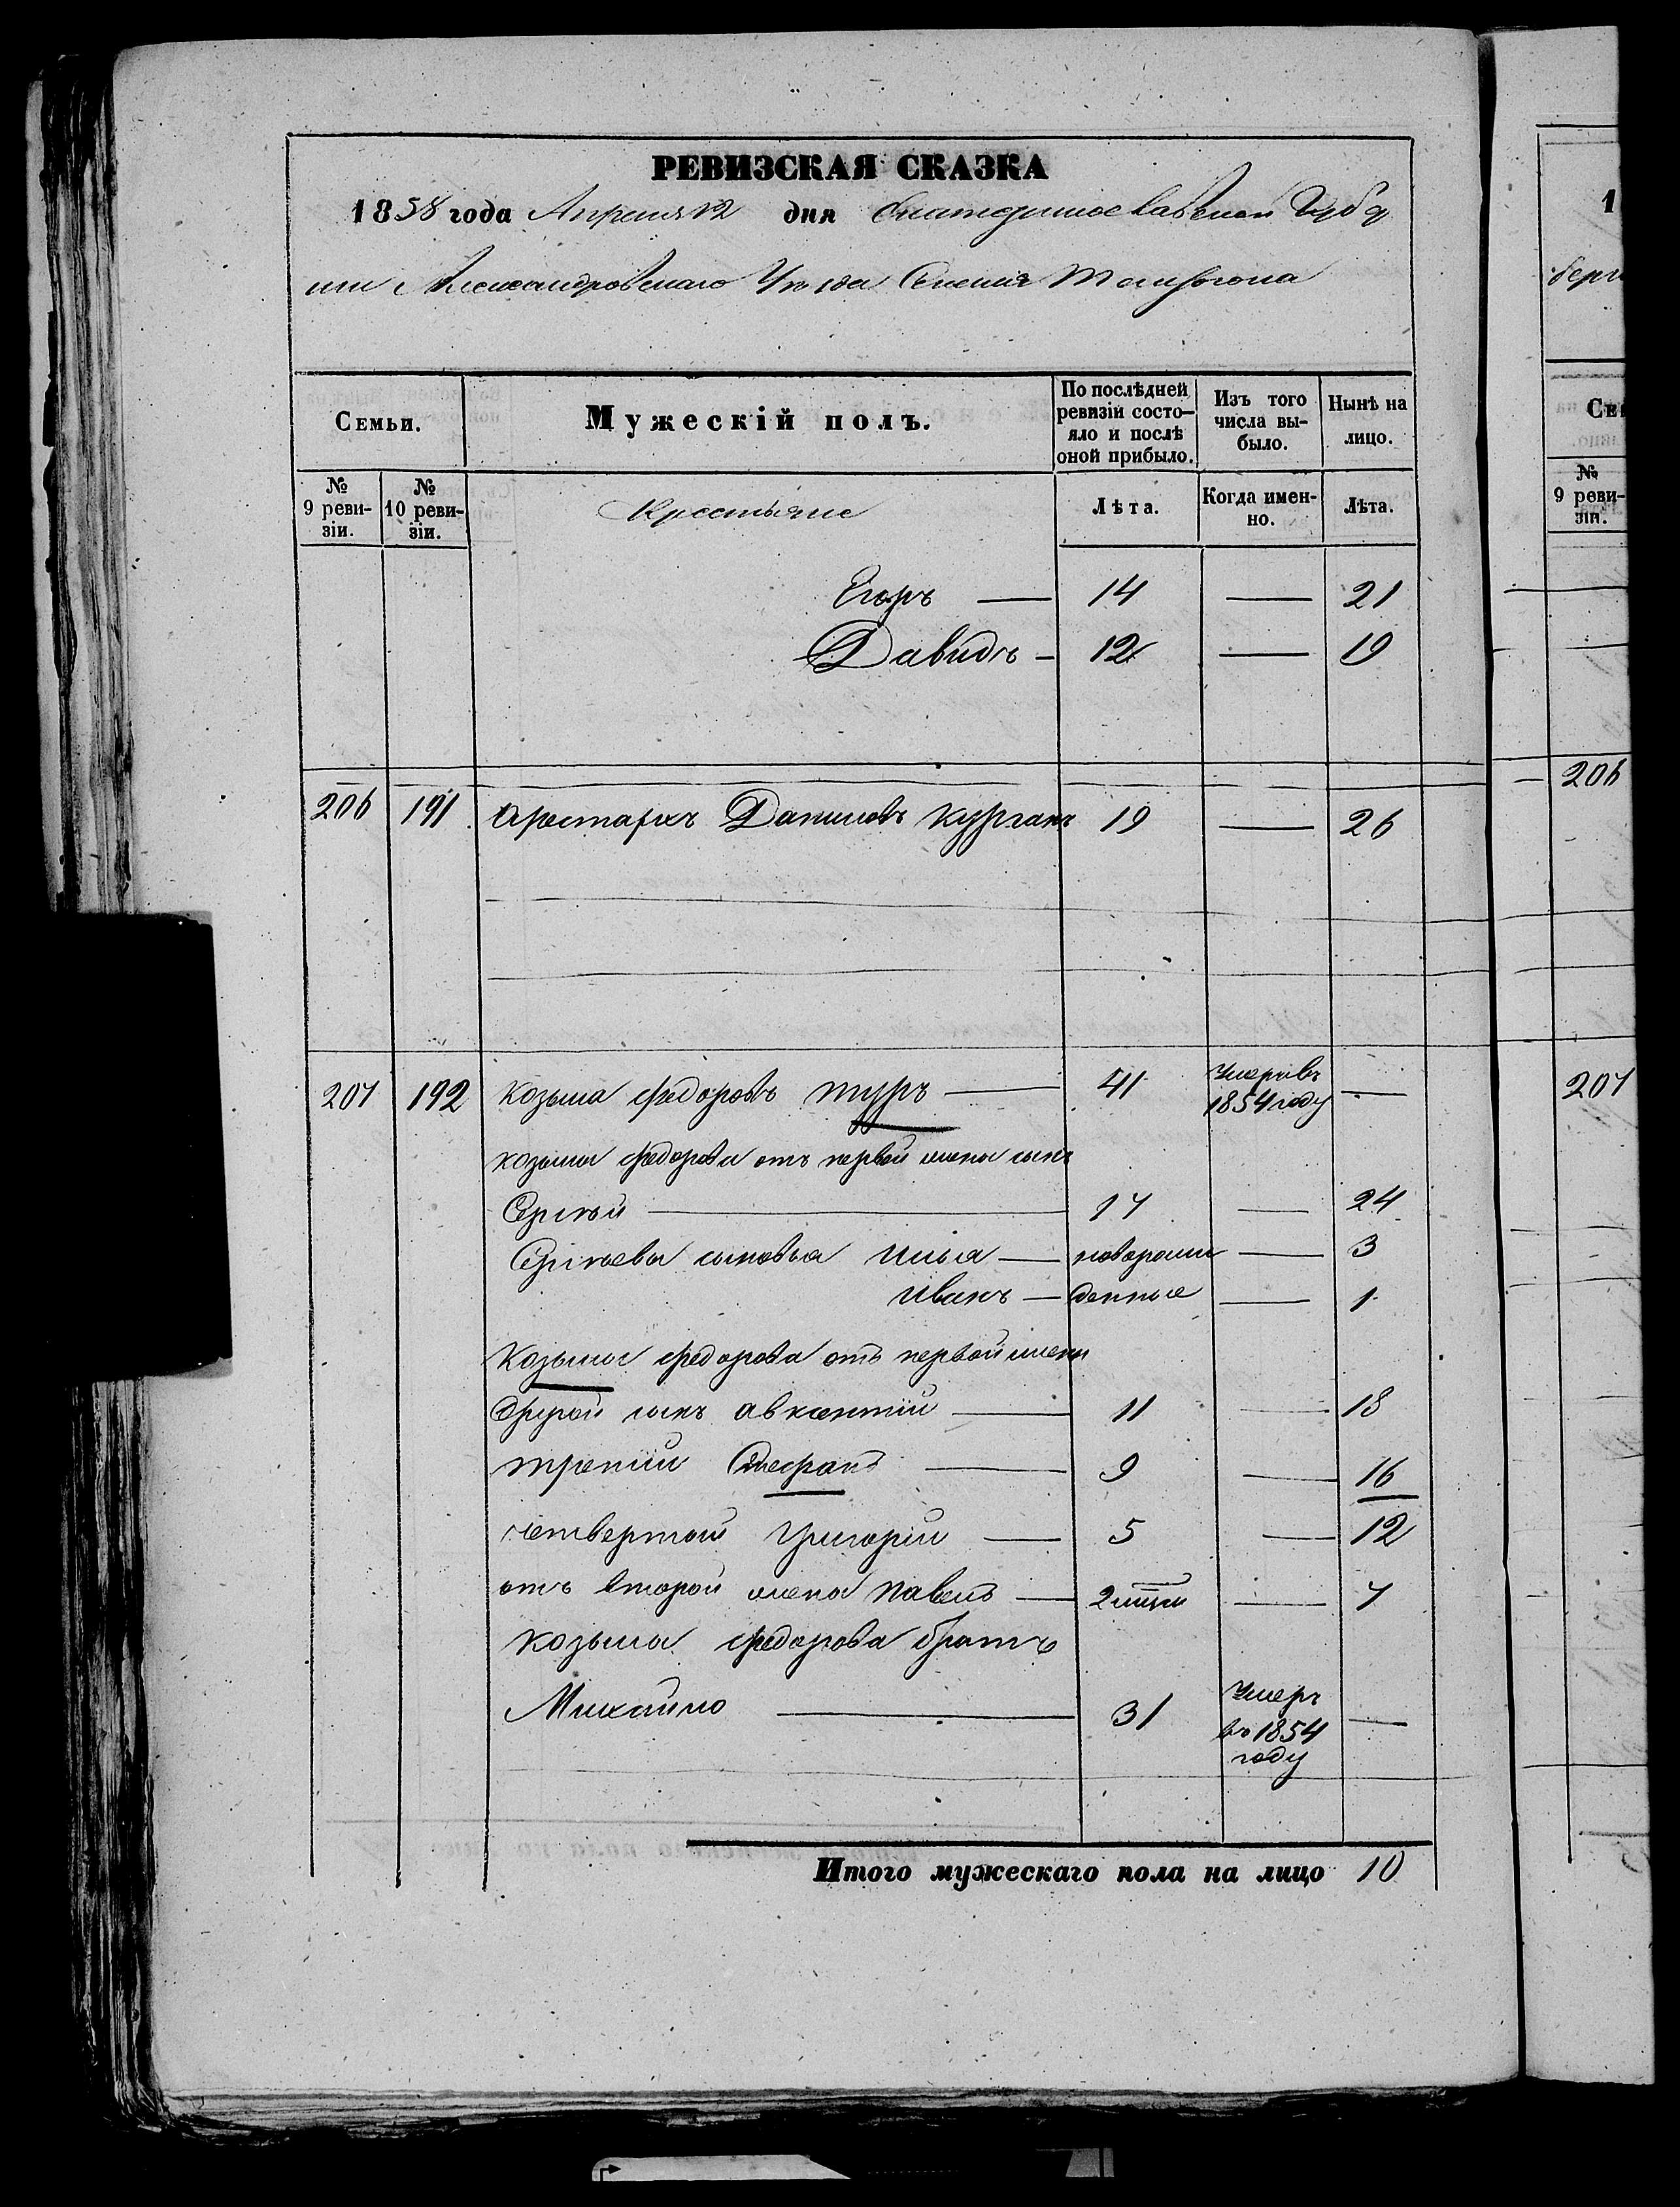 РЕВИЗСКАЯ СКАЗКА
1858 года Апреля 12 дня Екатеринославской Губер
нии Александровскаго Уѣзда Селения
Семьи. Мужескій полъ. По послѣдней ревизіи состояло и послѣ оной прибыло. Изъ того числа выбыло. Нынѣ на лицо.
№ 9 ревизіи. № 10 ревизіи. Крестьяне Лѣта. Когда именно. Лѣта.
Егоръ — 14 — 21
Давидъ — 12 — 19
206 191 Арестархъ Даниловъ Курганъ 19 — 26
207 192 Козьма Федоровъ Туръ — 41 Умеръ въ 1854 году —
Козьмы Федорова отъ первой жены сынъ
Сергѣй — 17 — 24
Сергѣевы сыновья Илья — новорож — 3
Иванъ — денные — 1
Козьмы Федорова отъ первой жены
другой сынъ Авксентий — 11 — 18
третий — 9 — 16
четвертой Григорий — 5 — 12
отъ второй жены Павелъ — — 7
Козьмы Федорова братъ
Михайло — 31 Умеръ въ 1854 году —
Итого мужескаго пола на лицо 10
1
берн
Се
№
9 реви-
зіи.
206
207